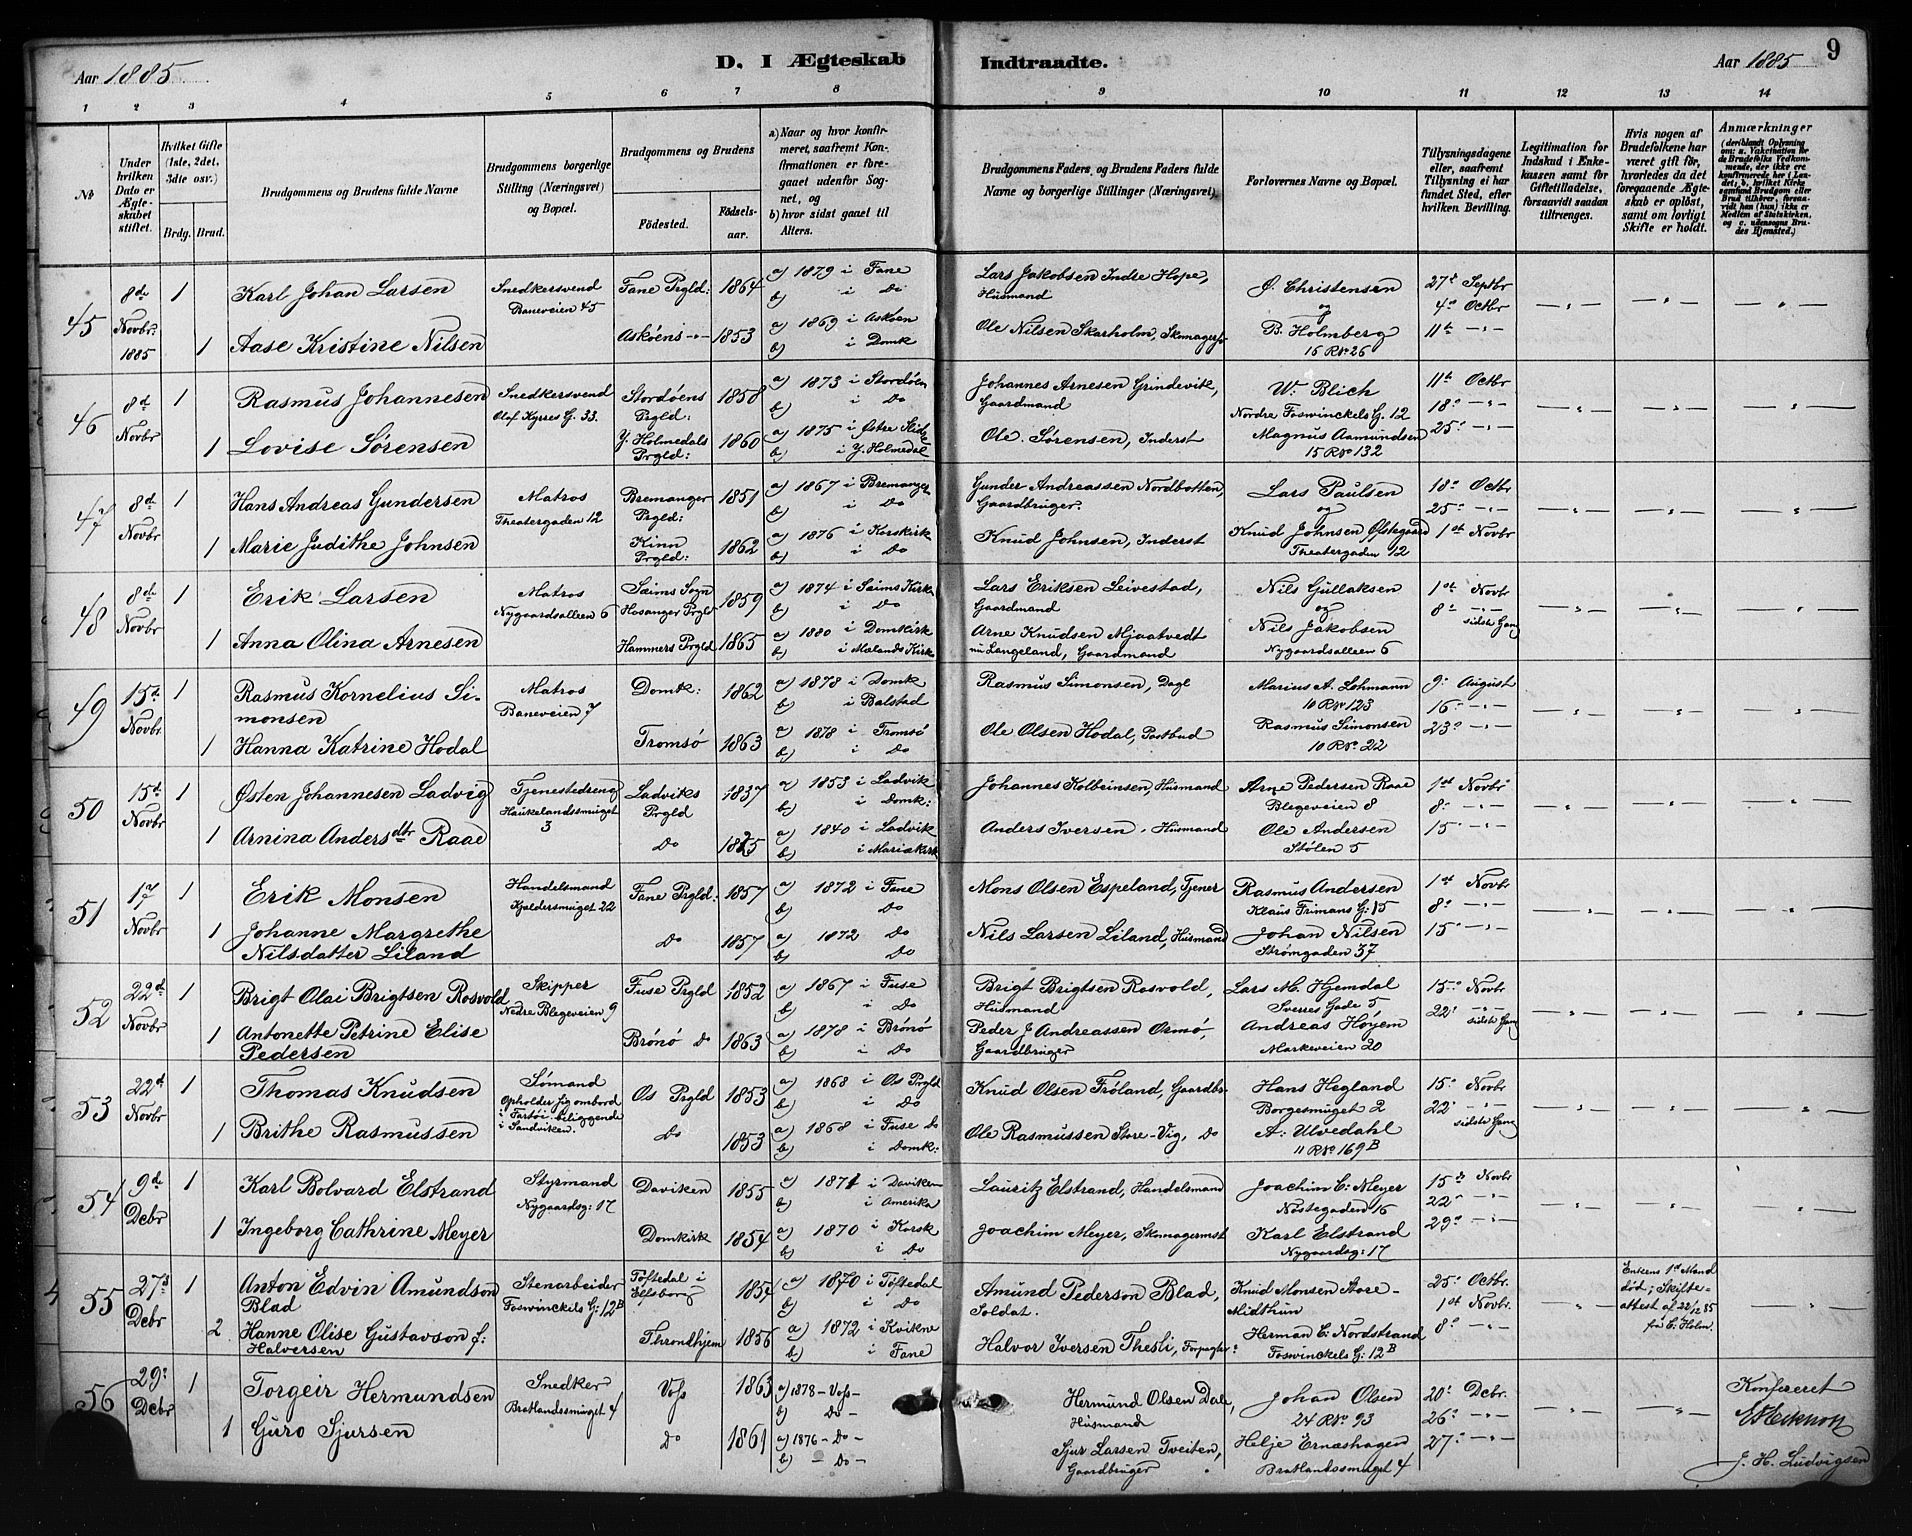 Aar 1885
D. I Ægteskab Indtraadte.
Aar 1885
9
1 2 3 4 5 6 7 8 9 10 11 12 13 14
№
Under hvilken Dato er Ægteskabet stiftet.
Hvilket Gifte (1ste, 2det, 3die osv.)
Brdg. Brud.
Brudgommens og Brudens fulde Navne
Brudgommens borgerlige Stilling (Næringsvei) og Bopæl.
Brudgommens og Brudens
Fødested.
Fødselsaar.
a) Naar og hvor konfirmeret, saafremt Konfirmationen er foregaaet udenfor Sognet, og
b) hvor sidst gaaet til Alters.
Brudgommens Faders, og Brudens Faders fulde Navne og borgerlige Stillinger (Næringsvei)
Forlovernes Navne og Bopæl.
Tillysningsdagene eller, saafremt Tillysning ei har fundet Sted, efter hvilken Bevilling.
Legitimation for Indskud i Enkekassen samt for Giftetilladelse, forsaavidt saadan tiltrænges.
Hvis nogen af Brudefolkene har været gift før, hvorledes da det foregaaende Ægteskab er opløst, samt om lovligt Skifte er holdt.
Anmærkninger
(deriblandt Oplysning om: a. Vakcination for de Brudefolks Vedkommende, der ikke ere konfirmerede her i Landet; b. hvilket Kirkesamfund Brudgom eller Brud tilhører, forsaavidt han (hun) ikke er Medlem af Statskirken, og c. udensogns Brudes Hjemsted.)
45 8de Novbr. 1885 1 Karl Johan Larsen Snedkersvend Baneveien 45 Fane Prgld: 1864 a) 1879 i Fane b) i Do Lars Jakobsen Indre Hope, Husmand Ø. Christensen og 27de Septbr 4de Octbr
1 Aase Kristine Nilsen Askøens -"- 1853 a) 1869 i Askøen b) i Domk Ole Nilsen Skarholm, Skomagersv B. Holmberg 16 R№ 26 11te -"-
46 8d Novbr 1 Rasmus Johannesen Snedkersvend Olaf Kyrres G. 33. Stordøens Prgld: 1858 a) 1873 i Stordøen b) i Do Johannes Arnesen Grindevik, Gaardmand W. Blich Nordre Foswinckels G. 12 11te Octbr 18de -"-
1 Lovise Sørensen Y. Holmedals Prgld: 1860 a) 1875 i Østre b) i Y. Holmedal Ole Sørensen, Inderst Magnus Aamundsen 15 R№ 132 25de -"-
47 8d Novbr 1 Hans Andreas Gundersen Matros Theatergaden 12 Bremanger Prgld: 1851 a) 1867 i Bremanger b) i Do Gunder Andreassen Nordbotten, Gaardbruger. Lars Paulsen og 18de Octbr 25de -"-
1 Marie Judithe Johnsen Kinn Prgld: 1862 a) 1876 i Korskirk b) i Do Knud Johnsen, Inderst Knud Johnsen Østegaard Theatergaden 12 1st Novbr
48 8de Novbr 1 Erik Larsen Matros Nygaardsalleen 6 Sæims Sogn Hosanger Prgld 1859 a) 1874 i Sæims Kirke b) i Do Lars Eriksen Leivestad, Gaardmand Nils Gullaksen og 1st Novbr 8de -"- sidste Gang
1 Anna Olina Arnesen Hammers Prgld 1865 a) 1880 i Domkirk b) i Mælands Kirk Arne Knudsen Mjaatvedt nu Langeland, Gaardmand Nils Jakobsen Nygaardsalleen 6
49 15de Novbr 1 Rasmus Kornelius Simonsen Matros Baneveien 7 Domk: 1862 a) 1878 i Domk b) i Balstad Rasmus Simonsen, Dagl Marius A. Lohmann 10 R№ 123 9de August 16de -"-
1 Hanna Katrine Hodal Tromsø 1863 a) 1878 i Tromsø b) i Do Ole Olsen Hodal, Postbud Rasmus Simonsen 10 R№ 22 23de -"-
50 15de Novbr 1 Østen Johannesen Ladvig Tjenestedreng Haukelandssmuget 3 Ladviks Prgld 1837 a) 1853 i Ladvik b) i Domk: Johannes Kolbeinsen, Husmand Arne Pedersen Raae Blegeveien 8 1st Novbr 8de -"-
1 Arnina Andersdtr Raae Do 1825 a) 1840 i Ladvik b) i Mariækirk Anders Iversen, Husmand Ole Andersen Stølen 5 15de -"-
51 17 Novbr 1 Erik Monsen Handelsmand Kjeldersmuget 22 Fane Prgld: 1857 a) 1872 i Fane b) Do Mons Olsen Espeland, Tjener Rasmus Andersen Klaus Frimans G: 15 1st Novbr 8de -"-
1 Johanne Margrethe Nilsdatter Liland Do 1857 a) 1872 Do b) Do Nils Larsen Liland, Husmand Johan Nilsen Strømgaden 37 15de -"-
52 22d Novbr 1 Brigt Olai Brigtsen Rosvold Skipper Nedre Blegeveien 9 Fuse Prgld 1852 a) 1867 i Fuse b) i Do Brigt Brigtsen Rosvold, Husmand Lars M. Hjemdal Sverres Gade 5 15de Novbr 22de -"- sidste Gang
1 Antonette Petrine Elise Pedersen Brønø Do 1863 a) 1878 i Brønø b) i Do Peder J Andreassen Ormø, Gaardbruger Andreas Høyem Markeveien 20
53 22d Novbr 1 Thomas Knudsen Sømand Opholder sig ombord i Fartøi beliggende i Sandviken. Os Prgld 1853 a) 1868 i Os Prgld b) i Do Knud Olsen Frøland, Gaardbr Hans Hegland Borgesmuget 2 15de Novbr 22de -"- sidste Gang
1 Brithe Rasmussen Do 1853 a) 1868 i Fuse Do b) i Domk: Ole Rasmussen Store-Vig, Do A: Ulvedahl 11 R№ 169 B
54 9d Debr 1 Karl Bolvard Elstrand Styrmand Nygaardsg: 17 Daviken 1855 a) 1871 i Daviken b) i Amerika Lauritz Elstrand, Handelsmand Joachim C: Meyer Nøstegaden 16 15de Novbr 22de -"-
1 Ingeborg Cathrine Meyer Domkirk 1854 a) 1870 i Korsk b) i Do Joachim Meyer, Skomagermst Karl Elstrand Nygaardsg: 17 29de -"-
55 27de Debr 1 Anton Edvin Amundson Blad Stenarbeider Foswinckels G: 12 B Töftedal i Elfsborg 1854 a) 1870 i Töftedal b) i Do Amund Pederson Blad, Soldat. Knud Monsen Store-Midthun 25de Octbr. 1st Novbr. Enkens 1st Mand død; Skifteattest af 22/12 85 fra C: Holm.
2 Hanne Olise Gustavson f: Halversen Throndhjem 1856 a) 1872 i Kvikne b) i Fane Halvor Iversen Thesli, Forpagter Herman C: Nordstrand Foswinckels G: 12 B 8de -"-
56 29de Debr 1 Torgeir Hermundsen Snedker Bratlandssmuget 4 Voss 1863 a) 1878 - Voss - b) - Do - Hermund Olsen Dale, Husmand Johan Olsen 24 R№ 93 20de Debr. 26de -"- Konfereret
1 Guro Sjursen Do 1861 a) 1876 - Do - b) - Do - Sjur Larsen Tveiten, Gaardbruger Helje Ernæshagen Bratlandssmuget 4 27de -"- J. H. Ludvigsen